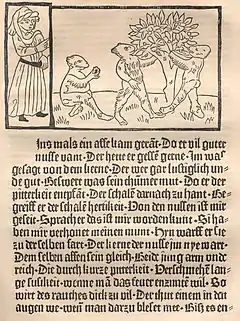 Ins mals ein affe kam gerāt· Do er vil guter
nusse vant· Der hette er gesse gerne· Im was
gesagt von dem kerne· Der wer gar lustiglich un-
de gut· Beswert was sein thummer mut· Do er der
pitterkeit empfāt· Der schalē darnach zu hant· Be-
greiff er der schalē hertikeit· Von den nussen ist mir
geseit· Sprach er das ist mir worden kunt· Si ha-
ben mir verhonet meinen munt· Hyn warff er sie
zu der selben fart· Der kerne der nusse im nye wart·
Dem selben affen sein gleich· Beide jung arm unde
reich· Die durch kurze pitterkeit· Verschmeht lan-
ge susikeit· Wenne mā das feuer enzunten wil· So
wirt des rauches dick zu vil· Der thut einem in den
augen we· wenn man darzu bleset mee· Biß es en-